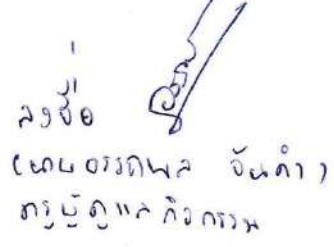 ลงชื่อ
(นายอรรถพล จันคำ)
ครูผู้ดูแลกิจกรรม